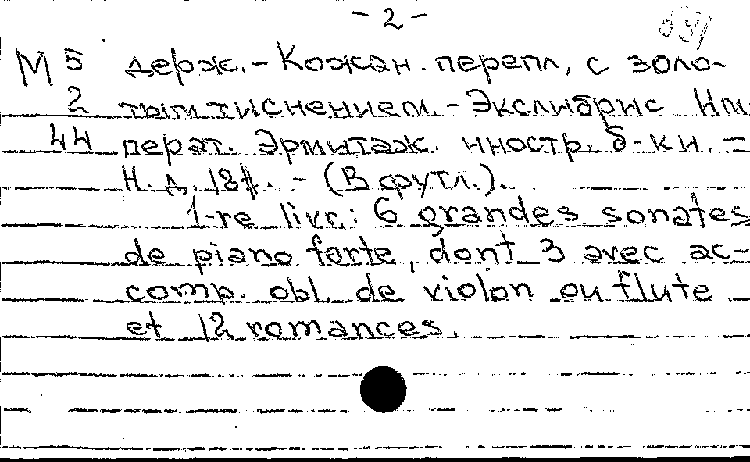 - 2 -
М 5 держ. - Кожан. перепл, с золо-
2 тым тиснением. - Экслибрис Им
44 перат. Эрмитаж. иностр. б-ки. =
Н. д. - (В футл.).
1-re livr.: 6 grandes sonates
de piano forte, dont 3 avec ac-
comp. obl. de violon ou flute
et 12 romances.